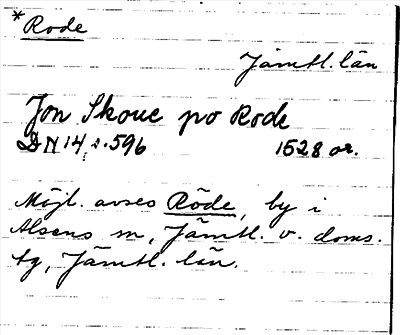 *Rode
Jämtl. län
Jon Skoue po Rode
DN 14 s. 596 1528 or.
Möjl. avses Röde, by i
Alsens sn, Jämtl. v. doms.
tg, Jämtl. län.